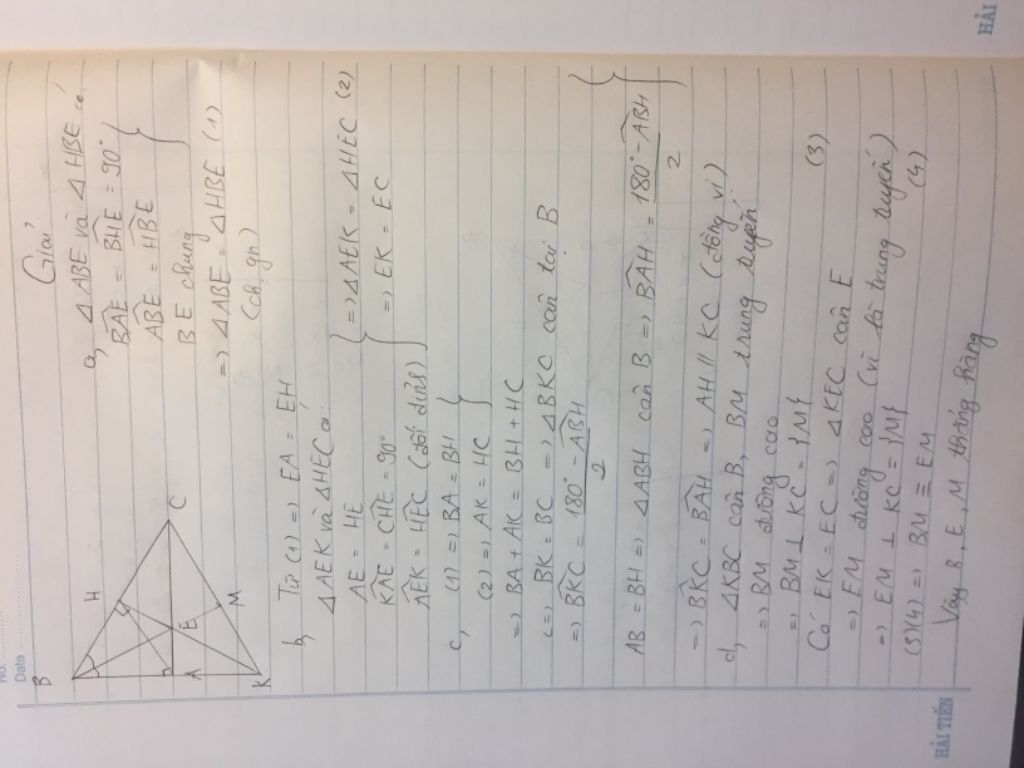 No:
Date
B
H
C
E
A
M
K
Giải
a, △ABE và △HBE có
BAE = BHE = 90°
ABE = HBE
BE chung
=> △ABE = △HBE (1)
(ch, gn)
b, Từ (1) => EA = EH
△AEK và △HEC có:
AE = HE
KAE = CHE = 90°
AEK = HEC (đối đỉnh)
=> △AEK = △HEC (2)
=> EK = EC
c, (1) => BA = BH
(2) => AK = HC
=> BA + AK = BH + HC
<=> BK = BC => △BKC cân tại B
=> BKC = (180° - ABH)/2
AB = BH => △ABH cân B => BAH = (180° - ABH)/2
=> BKC = BAH => AH // KC (đồng vị)
d, △KBC cân B, BM trung tuyến
=> BM đường cao
=> BM ⊥ KC = {M} (3)
Có EK = EC => △KEC cân E
=> EM đường cao (vì là trung tuyến)
=> EM ⊥ KC = {M} (4)
(3)(4) => BM ≡ EM
Vậy B, E, M thẳng hàng
HẢI TIẾN
HẢI